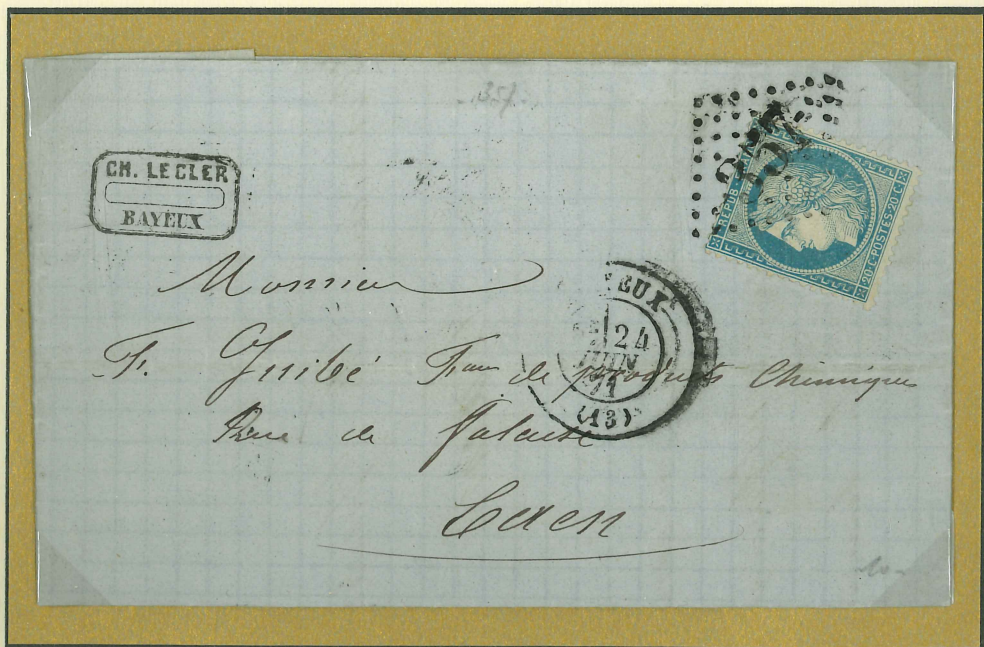 357
CH. LECLER
BAYEUX
357
REPUB
20·C·POSTES·20·C
EUX
24
JUIN
71
(13)
Monsieur
F. Guibé Fant de produits Chimiques
Rue de Falaise
Caen
10